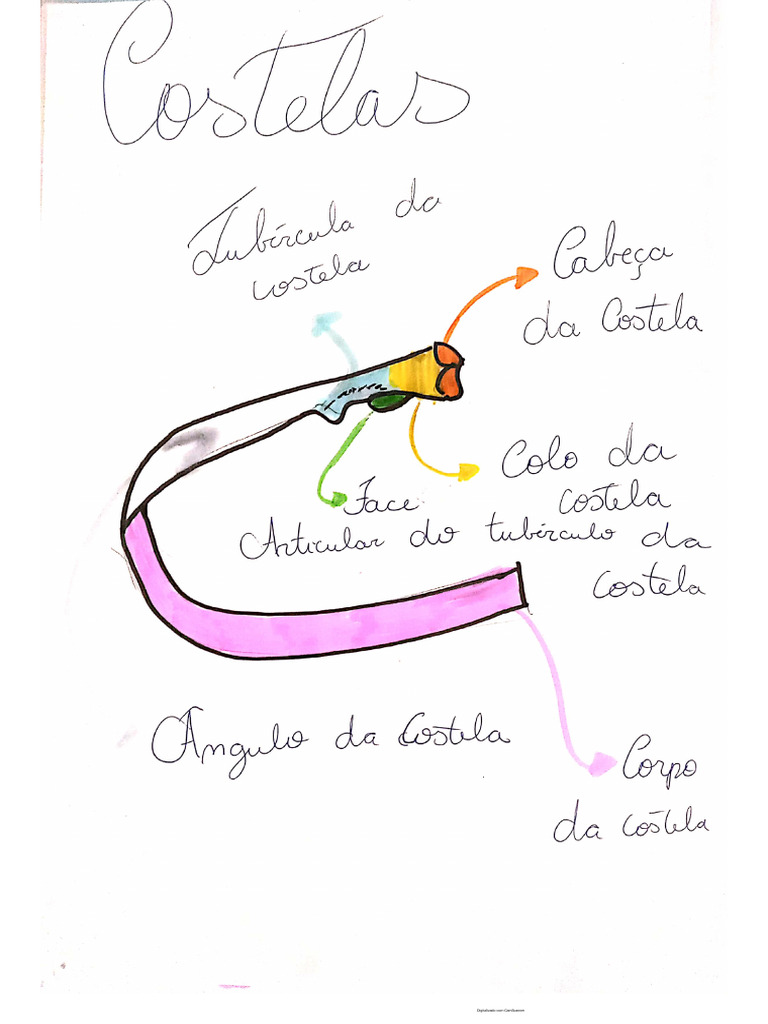 Costelas
Tubércula da
costela
Cabeça
da Costela
Colo da
costela
Face
Articular do tubérculo da
costela
Ângulo da Costela
Corpo
da costela
Digitalizado com CamScanner